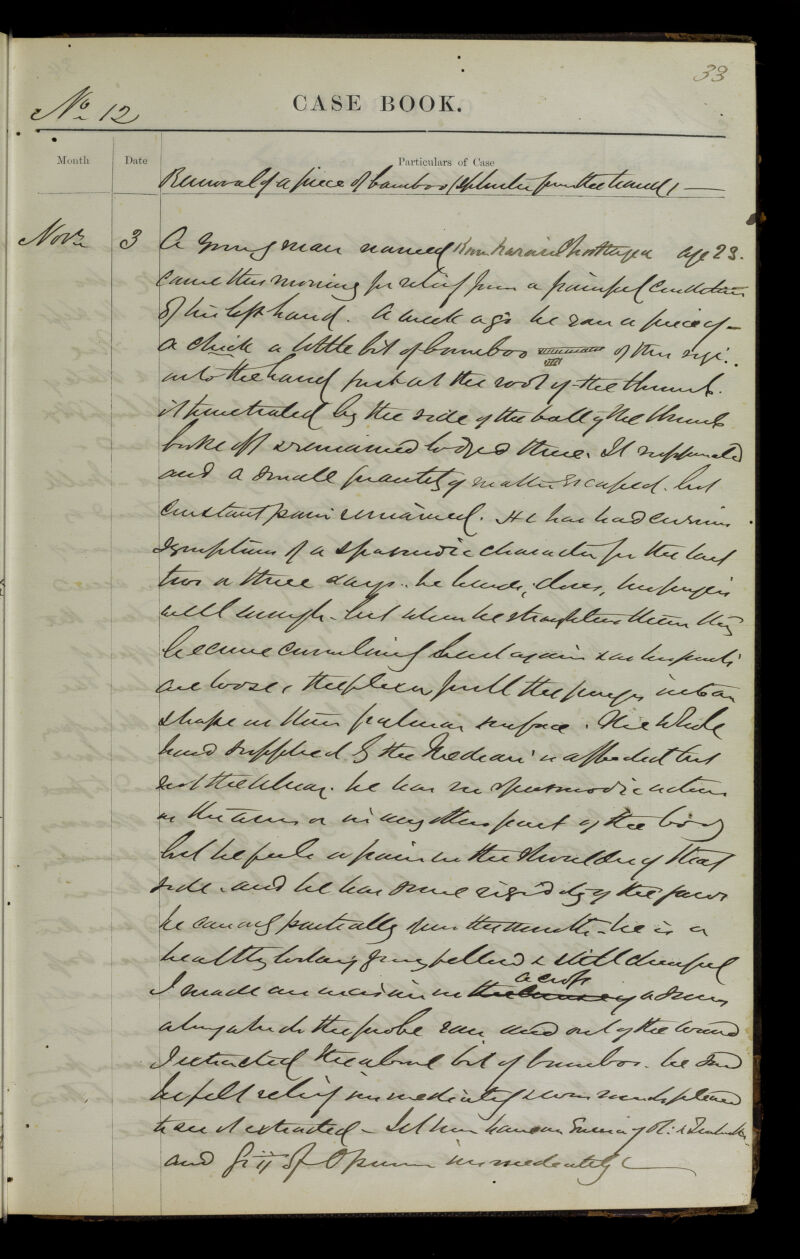 33
No 12
CASE BOOK.
Month Date Particulars of Case
Removal of a piece of bamboo (splinter from the hand) —
Novr 3 A young man named age 23.
came this morning for relief from a painful condition
of his left hand. A week ago he ran a piece of –
a chick a little bit of bamboo of this size.
into the hand just at the root of the thumb.
it penetrated by the side of the ball of the thumb
broke off & remained lodged there. It suppurated
and a small quantity of matter escaped. but
constant pain remained. He has had
symptoms of a spasmodic character for the last
two or three days. he bends, closes, his fingers
well enough – but when he straightens them they
become bent again & as his
are loose, the flexors pull the fingers into a
shape on their palmar surface. The whole
hand supplied by the Median is affected but
not the Ulnar. he has no spasmodic action
in the arms or in any other part of the body
but he feels a pain in the shoulder of that
side. and he has some rigidity of the jaws
he can only partially open the mouth – he is a
healthy looking young fellow & still cheerful
I made an incision in the across a sinus
along which the probe ran and out of the wound
I extracted the above bit of bamboo. he said
he felt relief immediately & was much pleased
to see it extracted – Let him have an Enema of Ol:
and Gr ii of Opium immediately